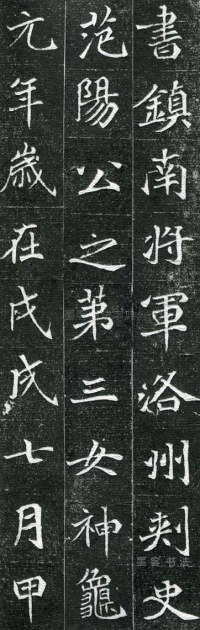 書鎮南將軍洛州刺史
范陽公之第三女神龜
元年歲在戊戌七月甲